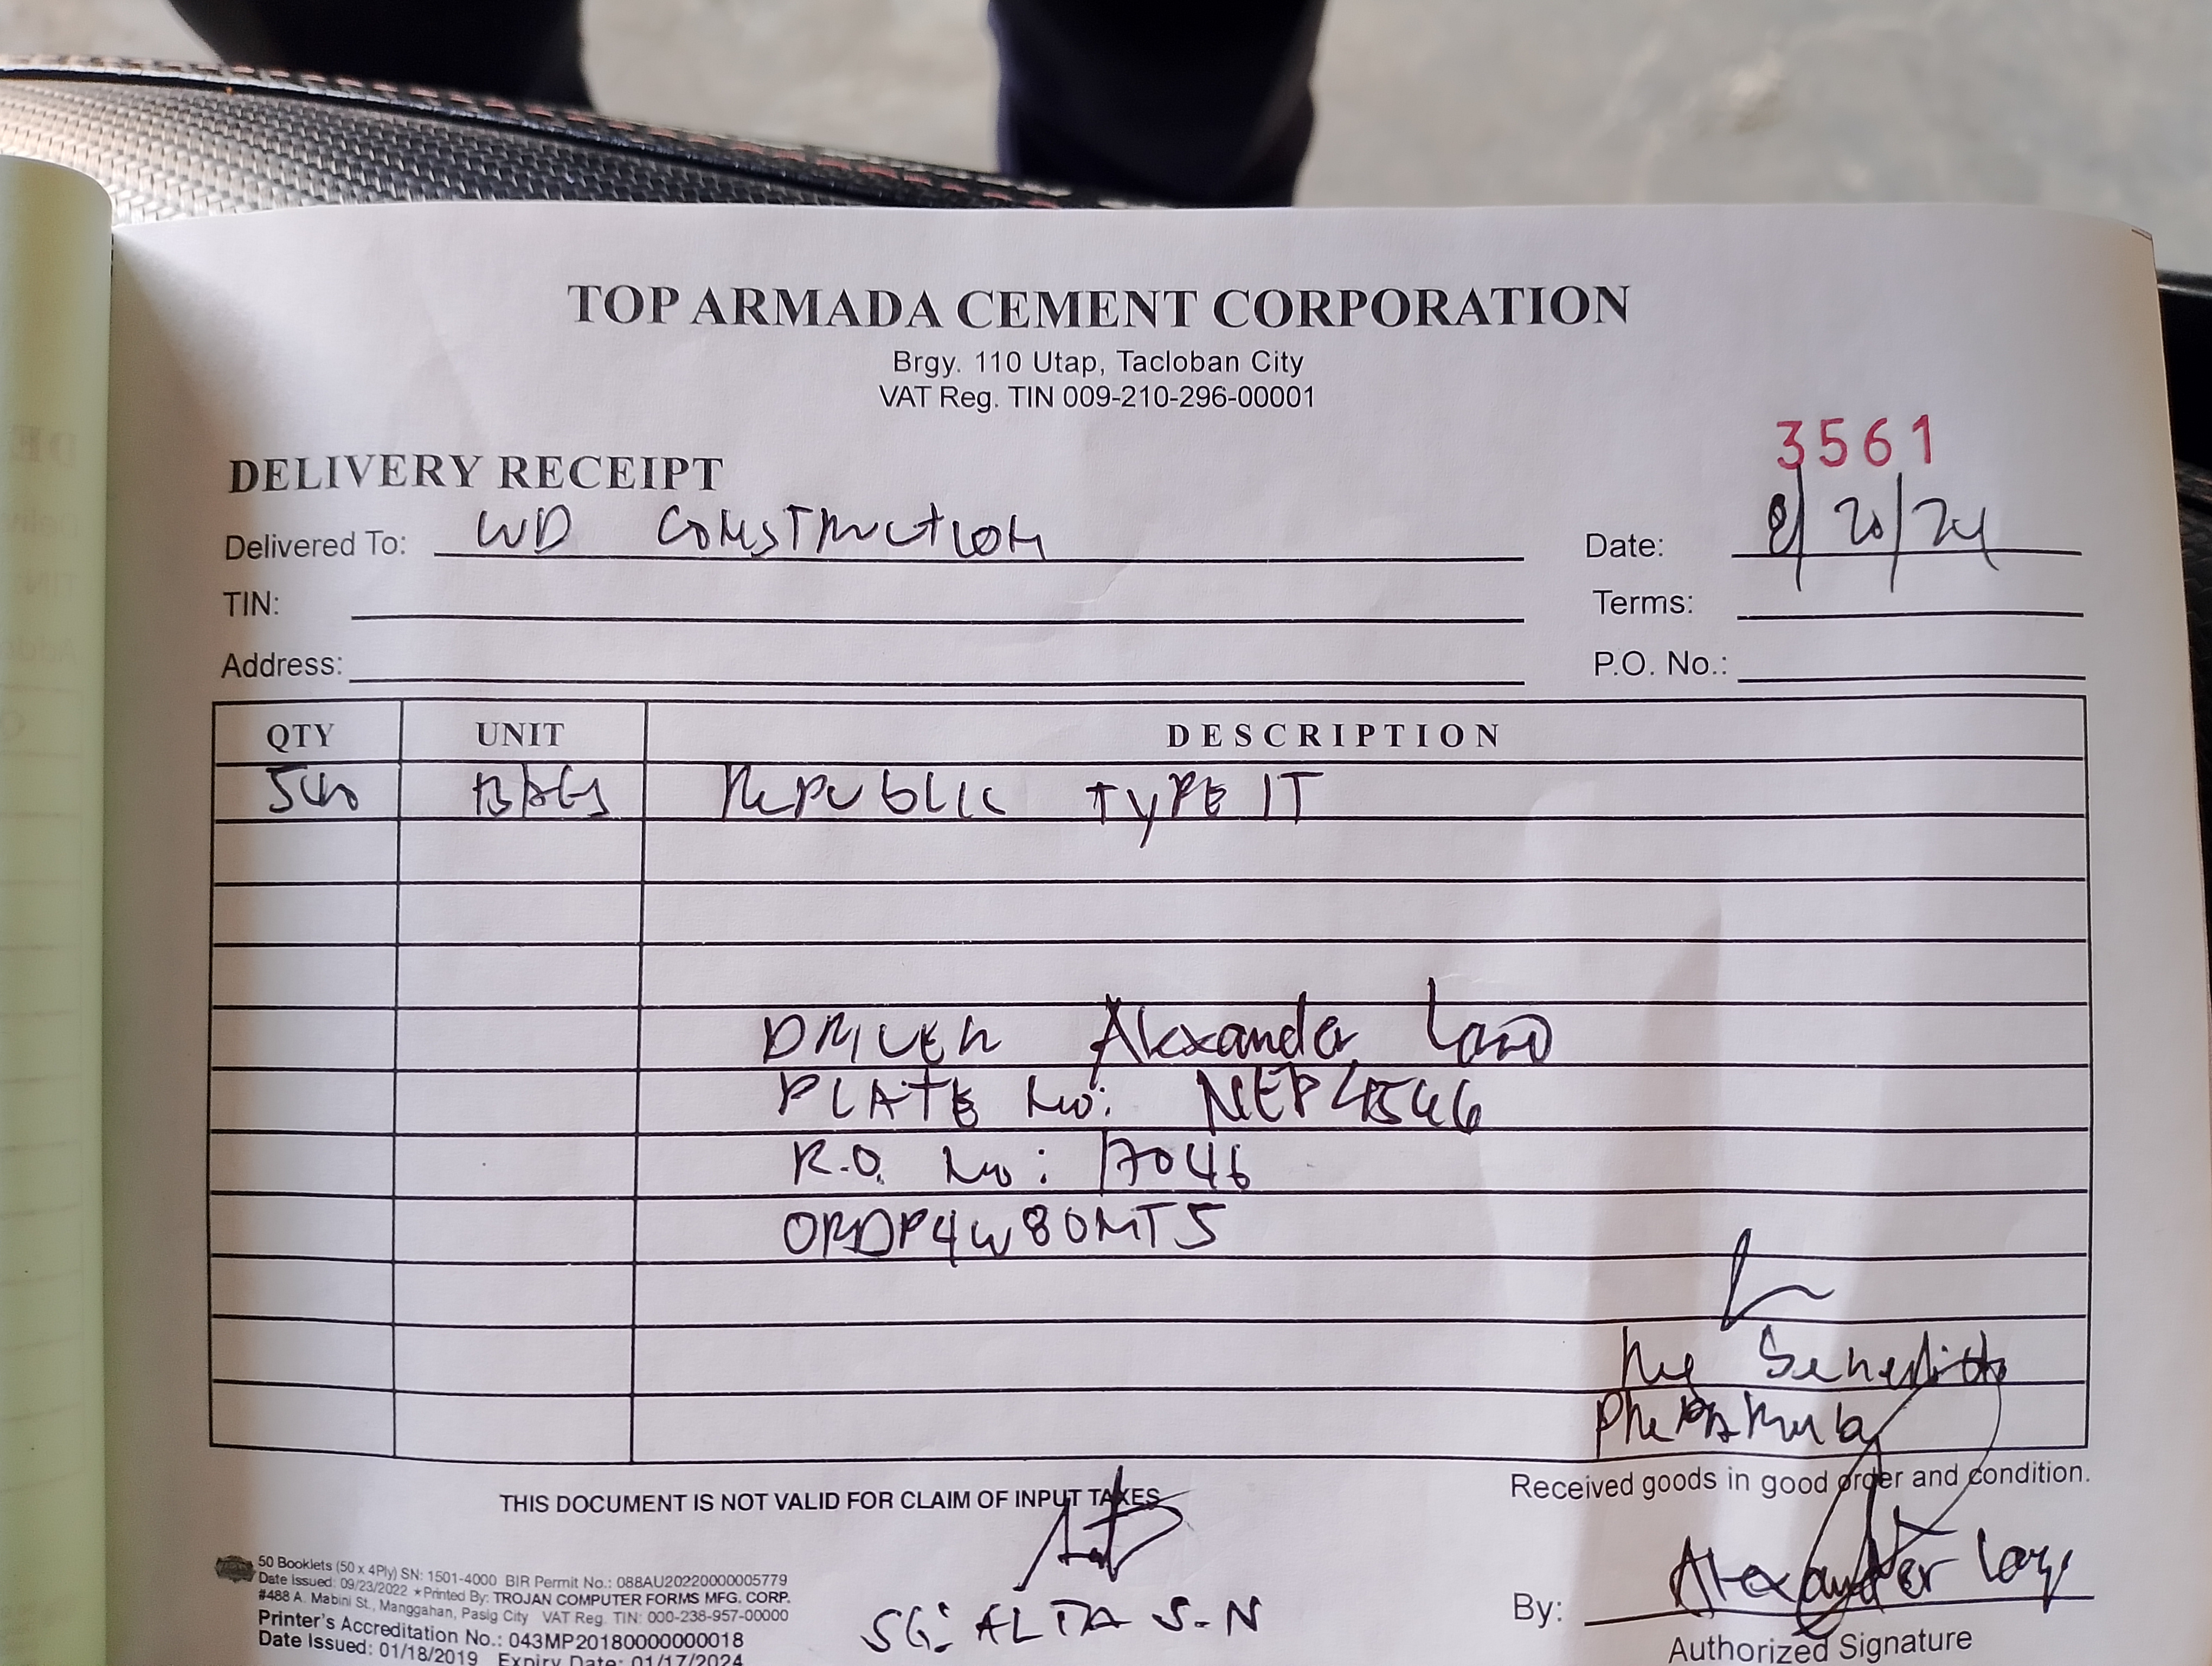 TOP ARMADA CEMENT CORPORATION
Brgy. 110 Utap, Tacloban City
VAT Reg. TIN 009-210-296-00001
3561
DELIVERY RECEIPT
Delivered To: WD CONSTRUCTION
Date: 8/20/24
TIN:
Terms:
Address:
P.O. No.:
QTY UNIT DESCRIPTION
BAGS REPUBLIC TYPE 1T
DRIVER Alexander
PLATE No: NEP4546
R.O. No: 17046
ORDP4W80MT5
THIS DOCUMENT IS NOT VALID FOR CLAIM OF INPUT TAXES
Received goods in good order and condition.
50 Booklets (50 x 4Ply) SN: 1501-4000 BIR Permit No.: 088AU20220000005779
Date Issued: 09/23/2022 ★Printed By: TROJAN COMPUTER FORMS MFG. CORP.
#488 A. Mabini St., Manggahan, Pasig City VAT Reg. TIN: 000-238-957-00000
Printer's Accreditation No.: 043MP20180000000018
Date Issued: 01/18/2019 Expiry Date: 01/17/2024
SG: ALTA S-N
By: Alexander
Authorized Signature